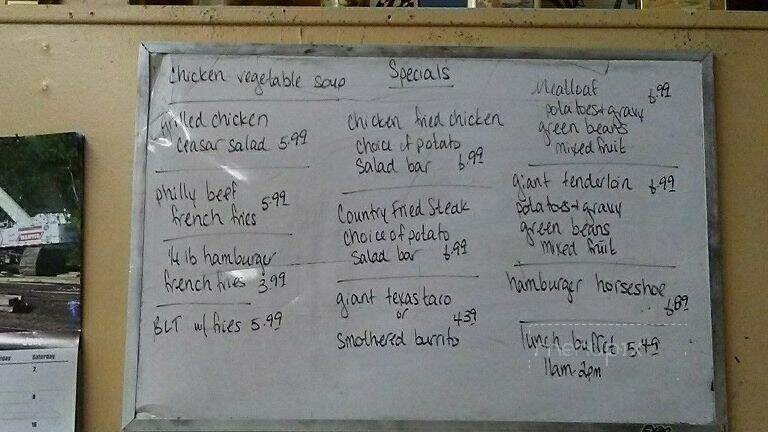 Chicken vegetable soup
Grilled chicken
Ceasar salad 5.99
philly beef 5.99
french fries
1/4 lb hamburger
french fries 3.99
BLT w/ fries 5.99
Specials
chicken fried chicken
choice of potato
salad bar 6.99
Country Fried Steak
choice of potato
salad bar 6.99
giant texas taco
or 4.39
Smothered burrito
Mealloaf 6.99
potatoes + gravy
green beans
mixed fruit
giant tenderloin 6.99
potatoes + gravy
green beans
mixed fruit
hamburger horseshoe
6.89
lunch buffet 5.49
11am-2pm
Saturday
2
9
16